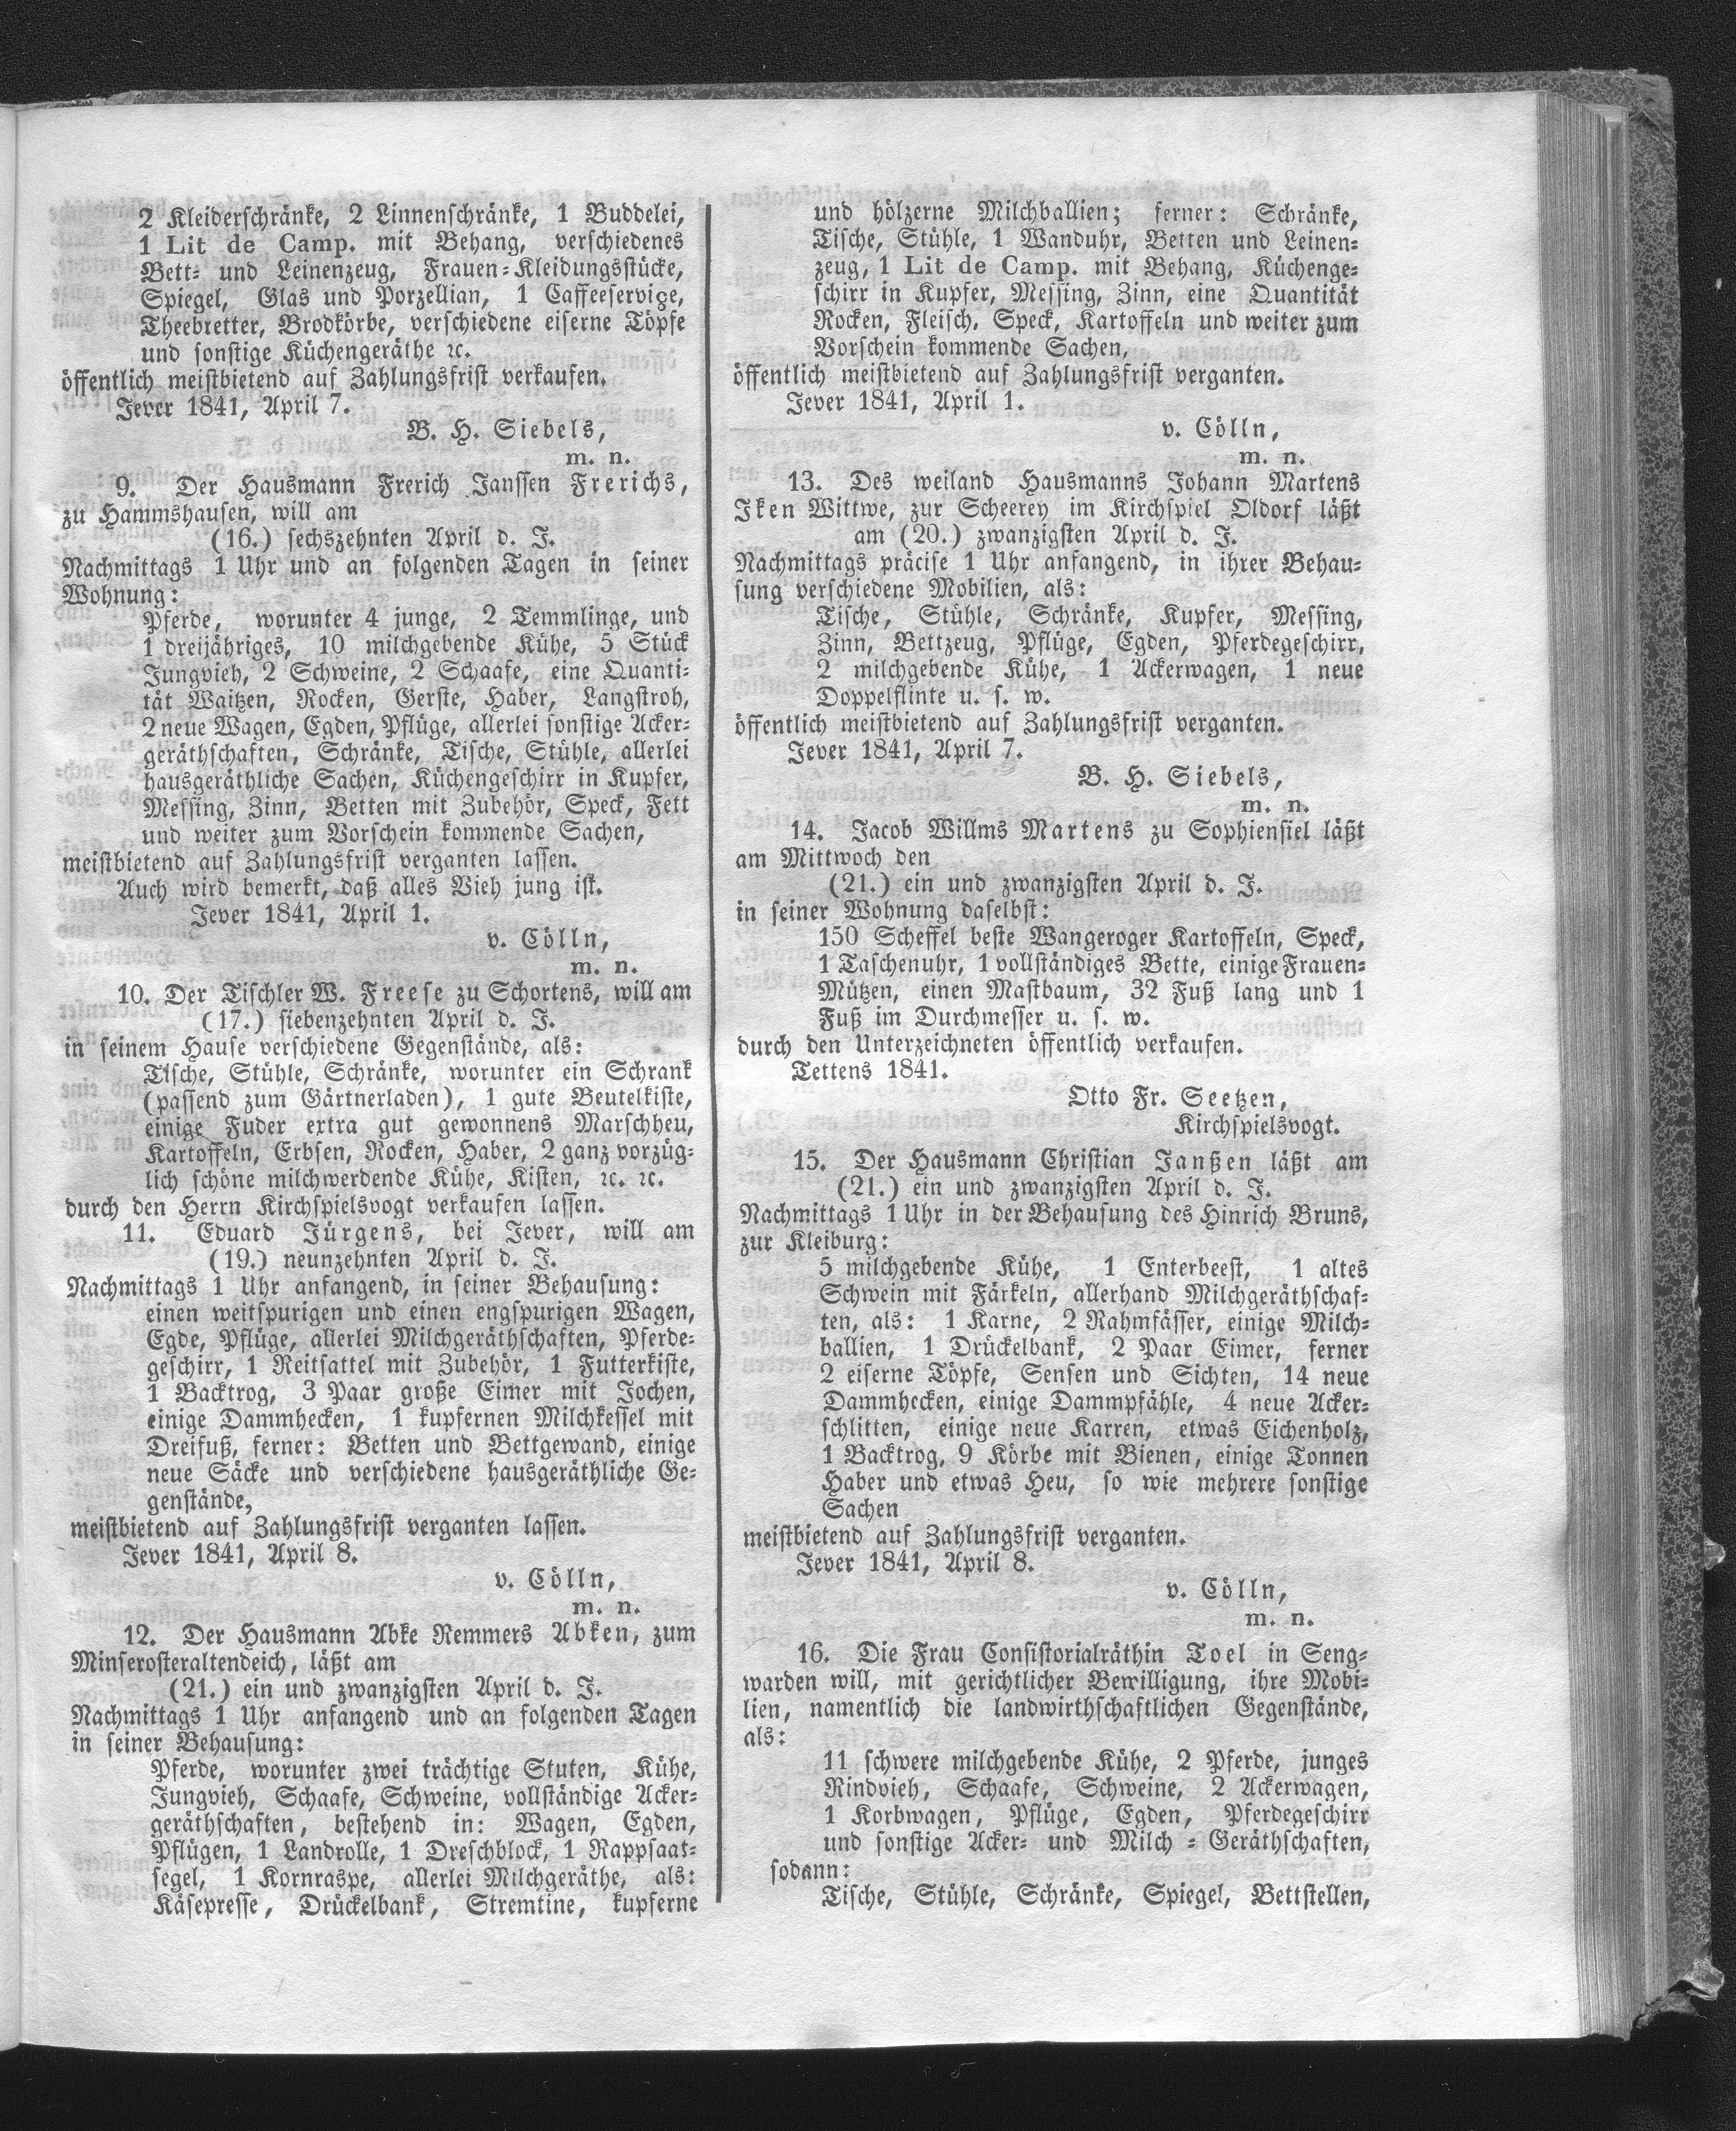 2 Kleiderschränke, 2 Linnenschränke, 1 Buddelei,
1 Lit de Camp. mit Behang, verschiedenes
Bett- und Leinenzeug, Frauen-Kleidungsstücke,
Spiegel, Glas und Porzellian, 1 Caffeeservice,
Theebretter, Brodkörbe, verschiedene eiserne Töpfe
und sonstige Küchengeräthe ꝛc.
öffentlich meistbietend auf Zahlungsfrist verkaufen.
Jever 1841, April 7.
B. H. Siebels,
m. n.
9. Der Hausmann Frerich Janssen Frerichs,
zu Hammshausen, will am
(16.) sechszehnten April d. J.
Nachmittags 1 Uhr und an folgenden Tagen in seiner
Wohnung:
Pferde, worunter 4 junge, 2 Temmlinge, und
1 dreijähriges, 10 milchgebende Kühe, 5 Stück
Jungvieh, 2 Schweine, 2 Schaafe, eine Quanti-
tät Waitzen, Rocken, Gerste, Haber, Langstroh,
2 neue Wagen, Egden, Pflüge, allerlei sonstige Acker-
geräthschaften, Schränke, Tische, Stühle, allerlei
hausgeräthliche Sachen, Küchengeschirr in Kupfer,
Messing, Zinn, Betten mit Zubehör, Speck, Fett
und weiter zum Vorschein kommende Sachen,
meistbietend auf Zahlungsfrist verganten lassen.
Auch wird bemerkt, daß alles Vieh jung ist.
Jever 1841, April 1.
v. Cölln,
m. n.
10. Der Tischler W. Freese zu Schortens, will am
(17.) siebenzehnten April d. J.
in seinem Hause verschiedene Gegenstände, als:
Tische, Stühle, Schränke, worunter ein Schrank
(passend zum Gärtnerladen), 1 gute Beutelkiste,
einige Fuder extra gut gewonnens Marschheu,
Kartoffeln, Erbsen, Rocken, Haber, 2 ganz vorzüg-
lich schöne milchwerdende Kühe, Kisten, ꝛc. ꝛc.
durch den Herrn Kirchspielsvogt verkaufen lassen.
11. Eduard Jürgens, bei Jever, will am
(19.) neunzehnten April d. J.
Nachmittags 1 Uhr anfangend, in seiner Behausung:
einen weitspurigen und einen engspurigen Wagen,
Egde, Pflüge, allerlei Milchgeräthschaften, Pferde-
geschirr, 1 Reitsattel mit Zubehör, 1 Futterkiste,
1 Backtrog, 3 Paar große Eimer mit Jochen,
einige Dammhecken, 1 kupfernen Milchkessel mit
Dreifuß, ferner: Betten und Bettgewand, einige
neue Säcke und verschiedene hausgeräthliche Ge-
genstände,
meistbietend auf Zahlungsfrist verganten lassen.
Jever 1841, April 8.
v. Cölln,
m. n.
12. Der Hausmann Abke Remmers Abken, zum
Minserosteraltendeich, läßt am
(21.) ein und zwanzigsten April d. J.
Nachmittags 1 Uhr anfangend und an folgenden Tagen
in seiner Behausung:
Pferde, worunter zwei trächtige Stuten, Kühe,
Jungvieh, Schaafe, Schweine, vollständige Acker-
geräthschaften, bestehend in: Wagen, Egden,
Pflügen, 1 Landrolle, 1 Dreschblock, 1 Rappsaat-
segel, 1 Kornraspe, allerlei Milchgeräthe, als:
Käsepresse, Drückelbank, Stremtine, kupferne
und hölzerne Milchballien; ferner: Schränke,
Tische, Stühle, 1 Wanduhr, Betten und Leinen-
zeug, 1 Lit de Camp. mit Behang, Küchenge-
schirr in Kupfer, Messing, Zinn, eine Quantität
Rocken, Fleisch, Speck, Kartoffeln und weiter zum
Vorschein kommende Sachen,
öffentlich meistbietend auf Zahlungsfrist verganten.
Jever 1841, April 1.
v. Cölln,
m. n.
13. Des weiland Hausmanns Johann Martens
Iken Wittwe, zur Scheerey im Kirchspiel Oldorf läßt
am (20.) zwanzigsten April d. J.
Nachmittags präcise 1 Uhr anfangend, in ihrer Behau-
sung verschiedene Mobilien, als:
Tische, Stühle, Schränke, Kupfer, Messing,
Zinn, Bettzeug, Pflüge, Egden, Pferdegeschirr,
2 milchgebende Kühe, 1 Ackerwagen, 1 neue
Doppelflinte u. s. w.
öffentlich meistbietend auf Zahlungsfrist verganten.
Jever 1841, April 7.
B. H. Siebels,
m. n.
14. Jacob Willms Martens zu Sophiensiel läßt
am Mittwoch den
(21.) ein und zwanzigsten April d. J.
in seiner Wohnung daselbst:
150 Scheffel beste Wangeroger Kartoffeln, Speck,
1 Taschenuhr, 1 vollständiges Bette, einige Frauen-
Mützen, einen Mastbaum, 32 Fuß lang und 1
Fuß im Durchmesser u. s. w.
durch den Unterzeichneten öffentlich verkaufen.
Tettens 1841.
Otto Fr. Seetzen,
Kirchspielsvogt.
15. Der Hausmann Christian Janßen läßt am
(21.) ein und zwanzigsten April d. J.
Nachmittags 1 Uhr in der Behausung des Hinrich Bruns,
zur Kleiburg:
5 milchgebende Kühe, 1 Enterbeest, 1 altes
Schwein mit Färkeln, allerhand Milchgeräthschaf-
ten, als: 1 Karne, 2 Rahmfässer, einige Milch-
ballien, 1 Drückelbank, 2 Paar Eimer, ferner
2 eiserne Töpfe, Sensen und Sichten, 14 neue
Dammhecken, einige Dammpfähle, 4 neue Acker-
schlitten, einige neue Karren, etwas Eichenholz,
1 Backtrog, 9 Körbe mit Bienen, einige Tonnen
Haber und etwas Heu, so wie mehrere sonstige
Sachen
meistbietend auf Zahlungsfrist verganten.
Jever 1841, April 8.
v. Cölln,
m. n.
16. Die Frau Consistorialräthin Toel in Seng-
warden will, mit gerichtlicher Bewilligung, ihre Mobi-
lien, namentlich die landwirthschaftlichen Gegenstände,
als:
11 schwere milchgebende Kühe, 2 Pferde, junges
Rindvieh, Schaafe, Schweine, 2 Ackerwagen,
1 Korbwagen, Pflüge, Egden, Pferdegeschirr
und sonstige Acker- und Milch-Geräthschaften,
sodann:
Tische, Stühle, Schränke, Spiegel, Bettstellen,